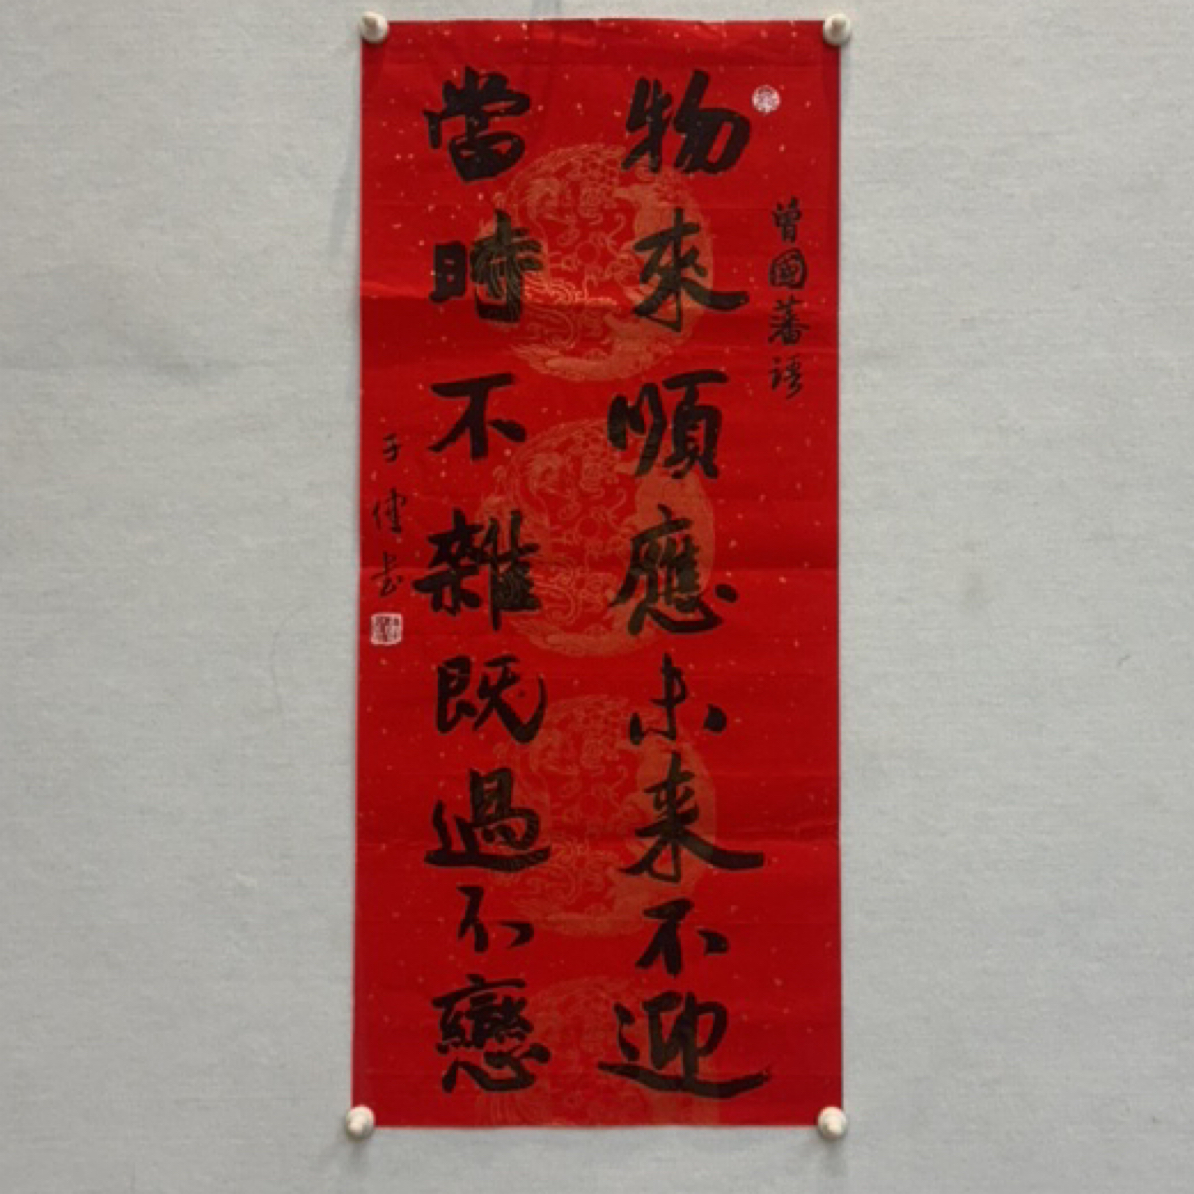 曾國藩語
物來順應未来不迎
當時不雜既過不戀
子健书